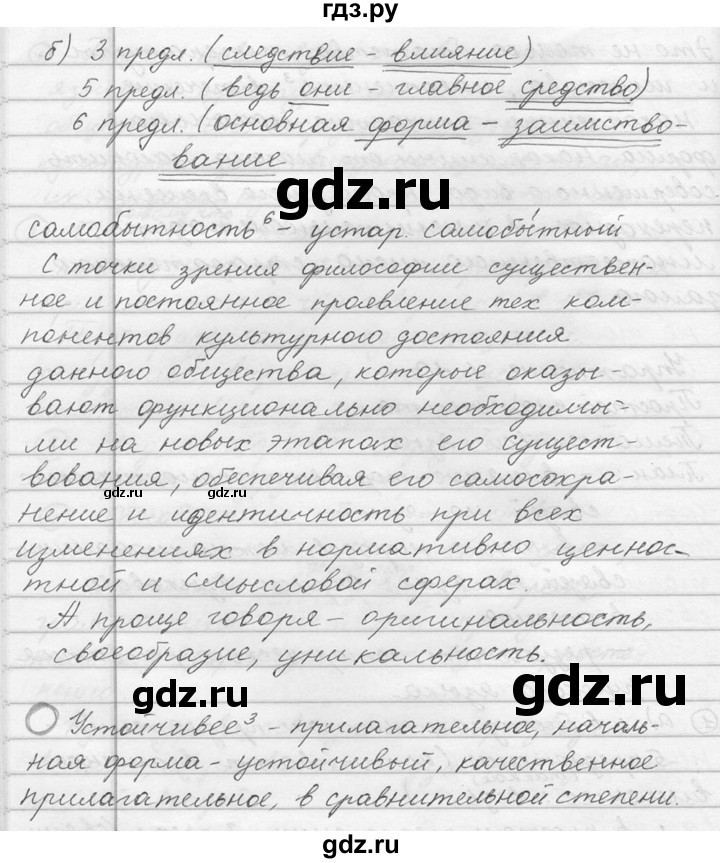 гдз.ру
б) 3 предл. (следствие - влияние)
5 предл. (ведь они - главное средство)
6 предл. (основная форма - заимство-
вание
gdz.ru
самобытность⁶ - устар. самобы́тный
С точки зрения философии существен-
ное и постоянное проявление тех ком-
понентов культурного достояния
данного общества, которые оказы-
вают функционально необходимы-
ми на новых этапах его сущест-
вования, обеспечивая его самосохра-
gdz.ru
gdz.ru
нение и идентичность при всех
изменениях в нормативно ценнос-
тной и смысловой сферах.
А проще говоря - оригинальность,
своеобразие, уникальность.
gdz.ru
gdz.ru
Устойчивее³ - прилагательное, началь-
ная форма - устойчивый, качественное
прилагательное, в сравнительной степени.
gdz.ru